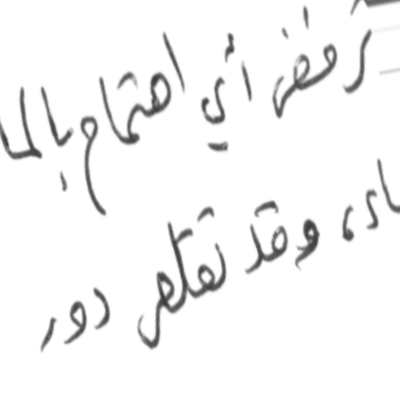 رفض أي اهتمام بالما
اد، وقد تقلص دور